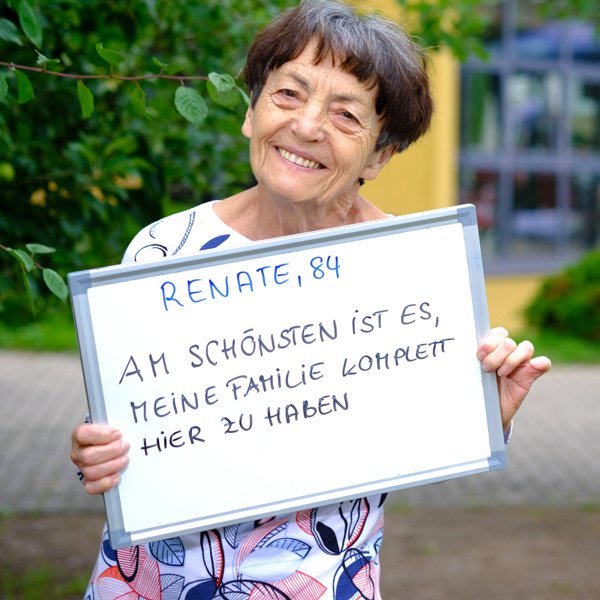 RENATE, 84
AM SCHÖNSTEN IST ES,
MEINE FAMILIE KOMPLETT
HIER ZU HABEN